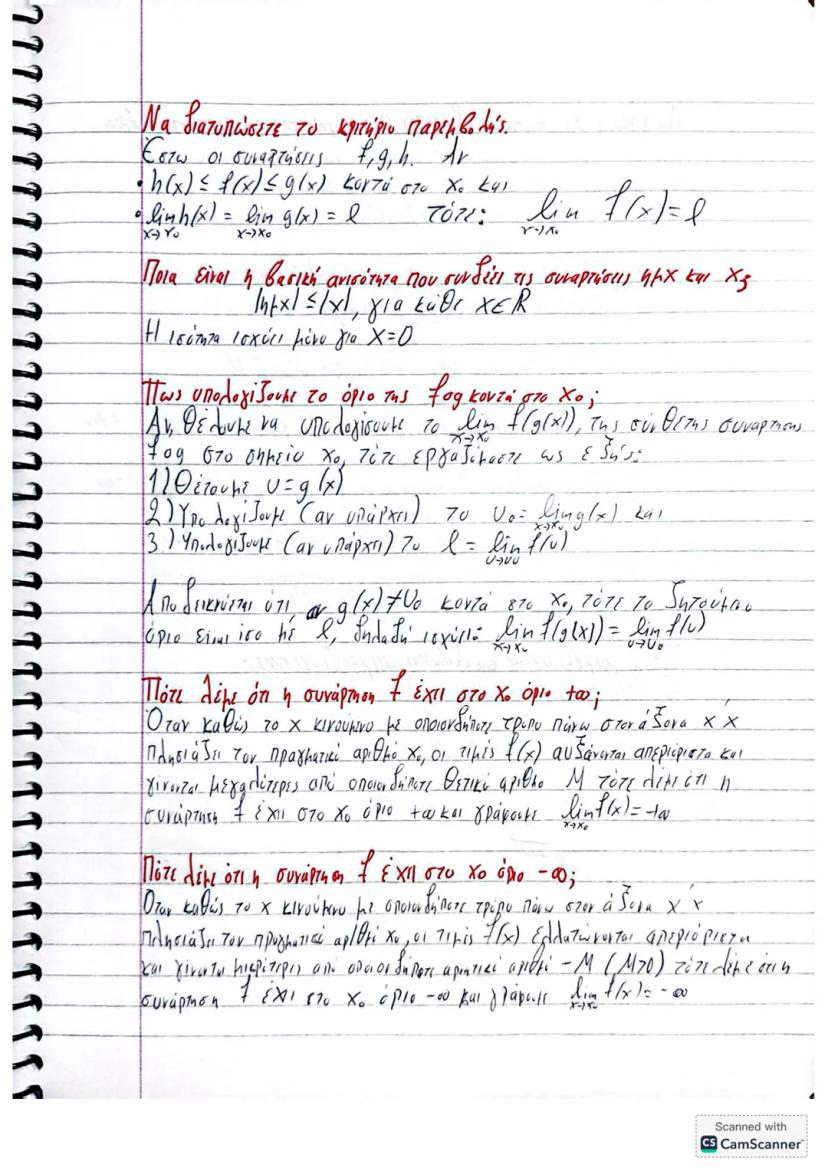 Να διατυπώσετε το κριτήριο παρεμβολής.
Έστω οι συναρτήσεις f,g,h. Αν
• h(x) ≤ f(x) ≤ g(x) κοντά στο x₀ και
• lim h(x) = lim g(x) = l τότε: lim f(x) = l
x→x₀ x→x₀ x→x₀
Ποια είναι η βασική ανισότητα που συνδέει τις συναρτήσεις ημx και x;
|ημx| ≤ |x|, για κάθε x∈R
Η ισότητα ισχύει μόνο για x=0
Πως υπολογίζουμε το όριο της fog κοντά στο x₀;
Αν θέλουμε να υπολογίσουμε το lim f(g(x)), της σύνθετης συνάρτησης
x→x₀
fog στο σημείο x₀, τότε εργαζόμαστε ως εξής:
1) Θέτουμε υ=g(x)
2) Υπολογίζουμε (αν υπάρχει) το υ₀= lim g(x) και
x→x₀
3) Υπολογίζουμε (αν υπάρχει) το l = lim f(υ)
υ→υ₀
Αποδεικνύεται ότι, αν g(x)≠υ₀ κοντά στο x₀, τότε το ζητούμενο
όριο είναι ίσο με l, δηλαδή ισχύει: lim f(g(x)) = lim f(υ)
x→x₀ υ→υ₀
Πότε λέμε ότι η συνάρτηση f έχει στο x₀ όριο +∞;
Όταν καθώς το x κινούμενο με οποιονδήποτε τρόπο πάνω στον άξονα x΄x
πλησιάζει τον πραγματικό αριθμό x₀, οι τιμές f(x) αυξάνονται απεριόριστα και
γίνονται μεγαλύτερες από οποιονδήποτε θετικό αριθμό M τότε λέμε ότι η
συνάρτηση f έχει στο x₀ όριο +∞ και γράφουμε lim f(x)=+∞
x→x₀
Πότε λέμε ότι η συνάρτηση f έχει στο x₀ όριο -∞;
Όταν καθώς το x κινούμενο με οποιονδήποτε τρόπο πάνω στον άξονα x΄x
πλησιάζει τον πραγματικό αριθμό x₀, οι τιμές f(x) ελλατώνονται απεριόριστα
και γίνονται μικρότερες από οποιονδήποτε αρνητικό αριθμό -M (M>0) τότε λέμε ότι η
συνάρτηση f έχει στο x₀ όριο -∞ και γράφουμε lim f(x)= -∞
x→x₀
Scanned with
CS CamScanner